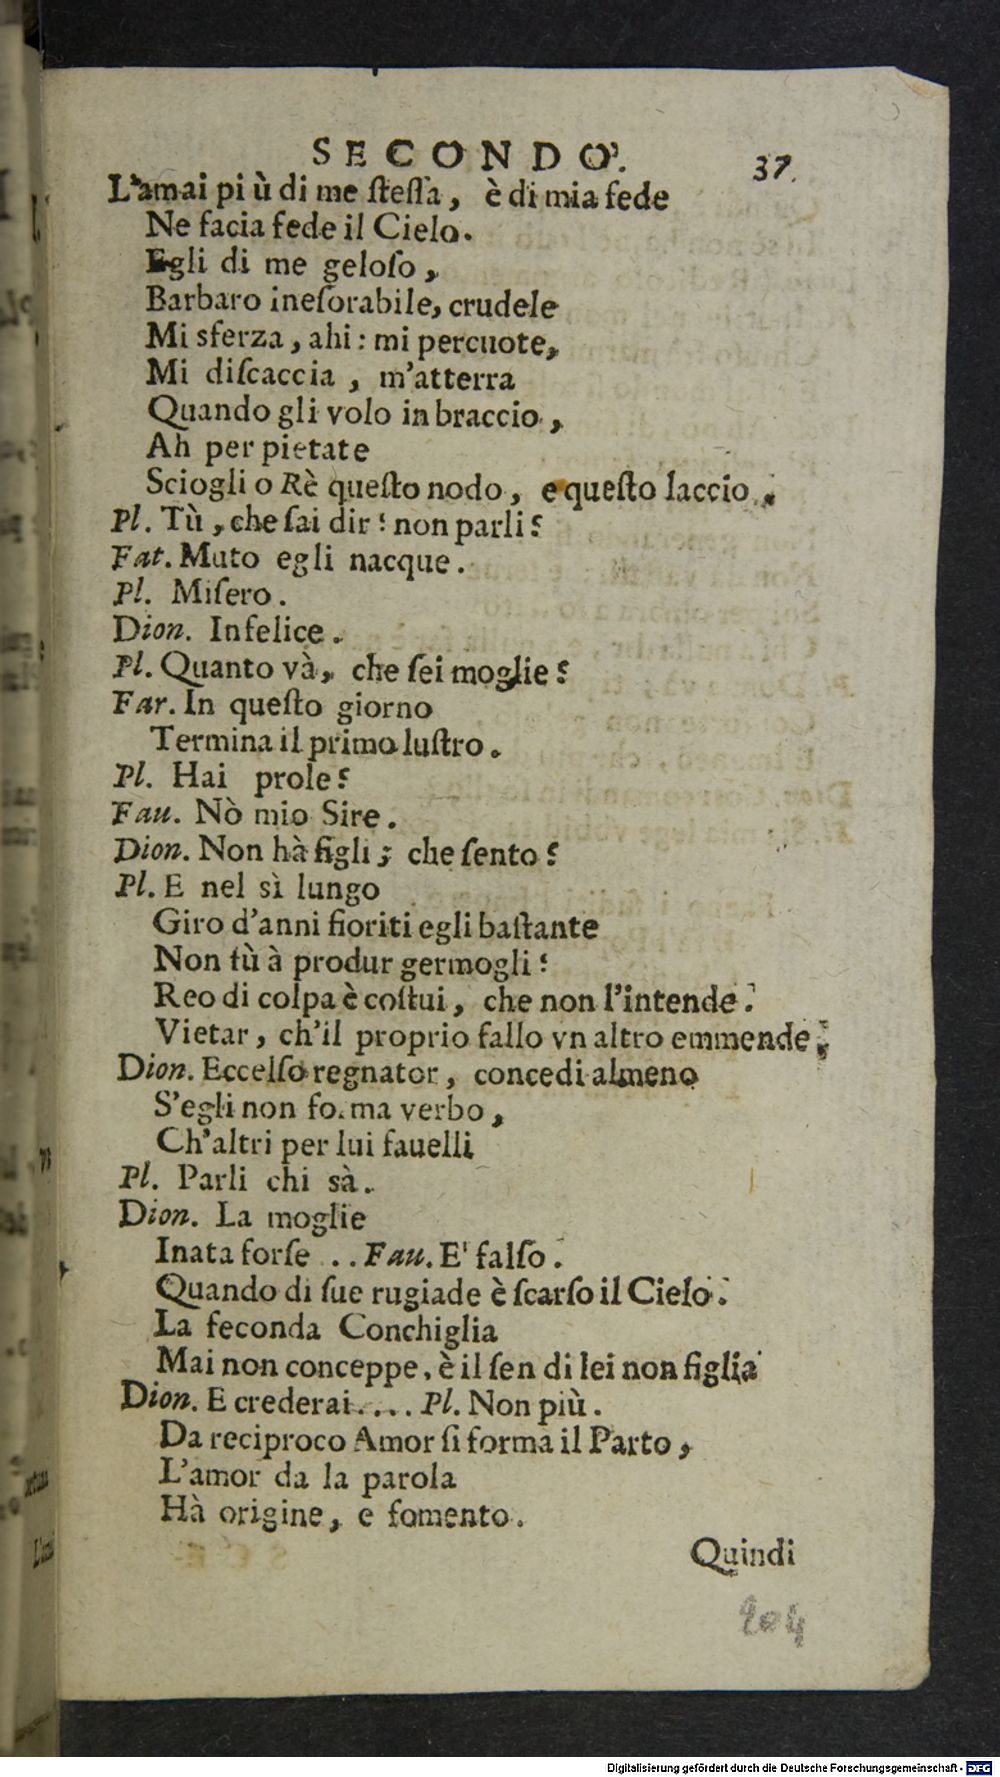 SECONDO. 37.
L'amai pi ù di me ſteſſa, è di mia fede
Ne facia fede il Cielo.
Egli di me geloſo,
Barbaro ineſorabile, crudele
Mi sferza, ahi: mi percuote,
Mi diſcaccia, m'atterra
Quando gli volo in braccio,
Ah per pietate
Sciogli o Rè queſto nodo, e queſto laccio.
Pl. Tù, che ſai dir? non parli?
Fat. Muto egli nacque.
Pl. Miſero.
Dion. Infelice.
Pl. Quanto và, che ſei moglie?
Far. In queſto giorno
Termina il primo luſtro.
Pl. Hai prole?
Fau. Nò mio Sire.
Dion. Non hà figli; che ſento?
Pl. E nel sì lungo
Giro d'anni fioriti egli baſtante
Non fù à produr germogli?
Reo di colpa è coſtui, che non l'intende.
Vietar, ch'il proprio fallo vn altro emmende.
Dion. Eccelſo regnator, concedi almeno
S'egli non fo.ma verbo,
Ch'altri per lui fauelli
Pl. Parli chi sà.
Dion. La moglie
Inata forſe .. Fau. E' falſo.
Quando di ſue rugiade è ſcarſo il Cielo.
La feconda Conchiglia
Mai non conceppe, è il ſen di lei non figlia
Dion. E crederai.... Pl. Non più.
Da reciproco Amor ſi forma il Parto,
L'amor da la parola
Hà origine, e fomento.
Quindi
204
Digitalisierung gefördert durch die Deutsche Forschungsgemeinschaft - DFG